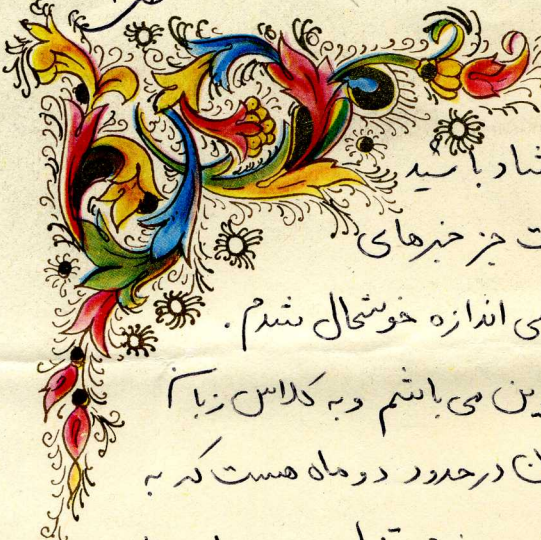 شاد باشید
جز خبرهای
بی اندازه خوشحال شدم .
می باشم و به کلاس زبان
در حدود دو ماه هست که به